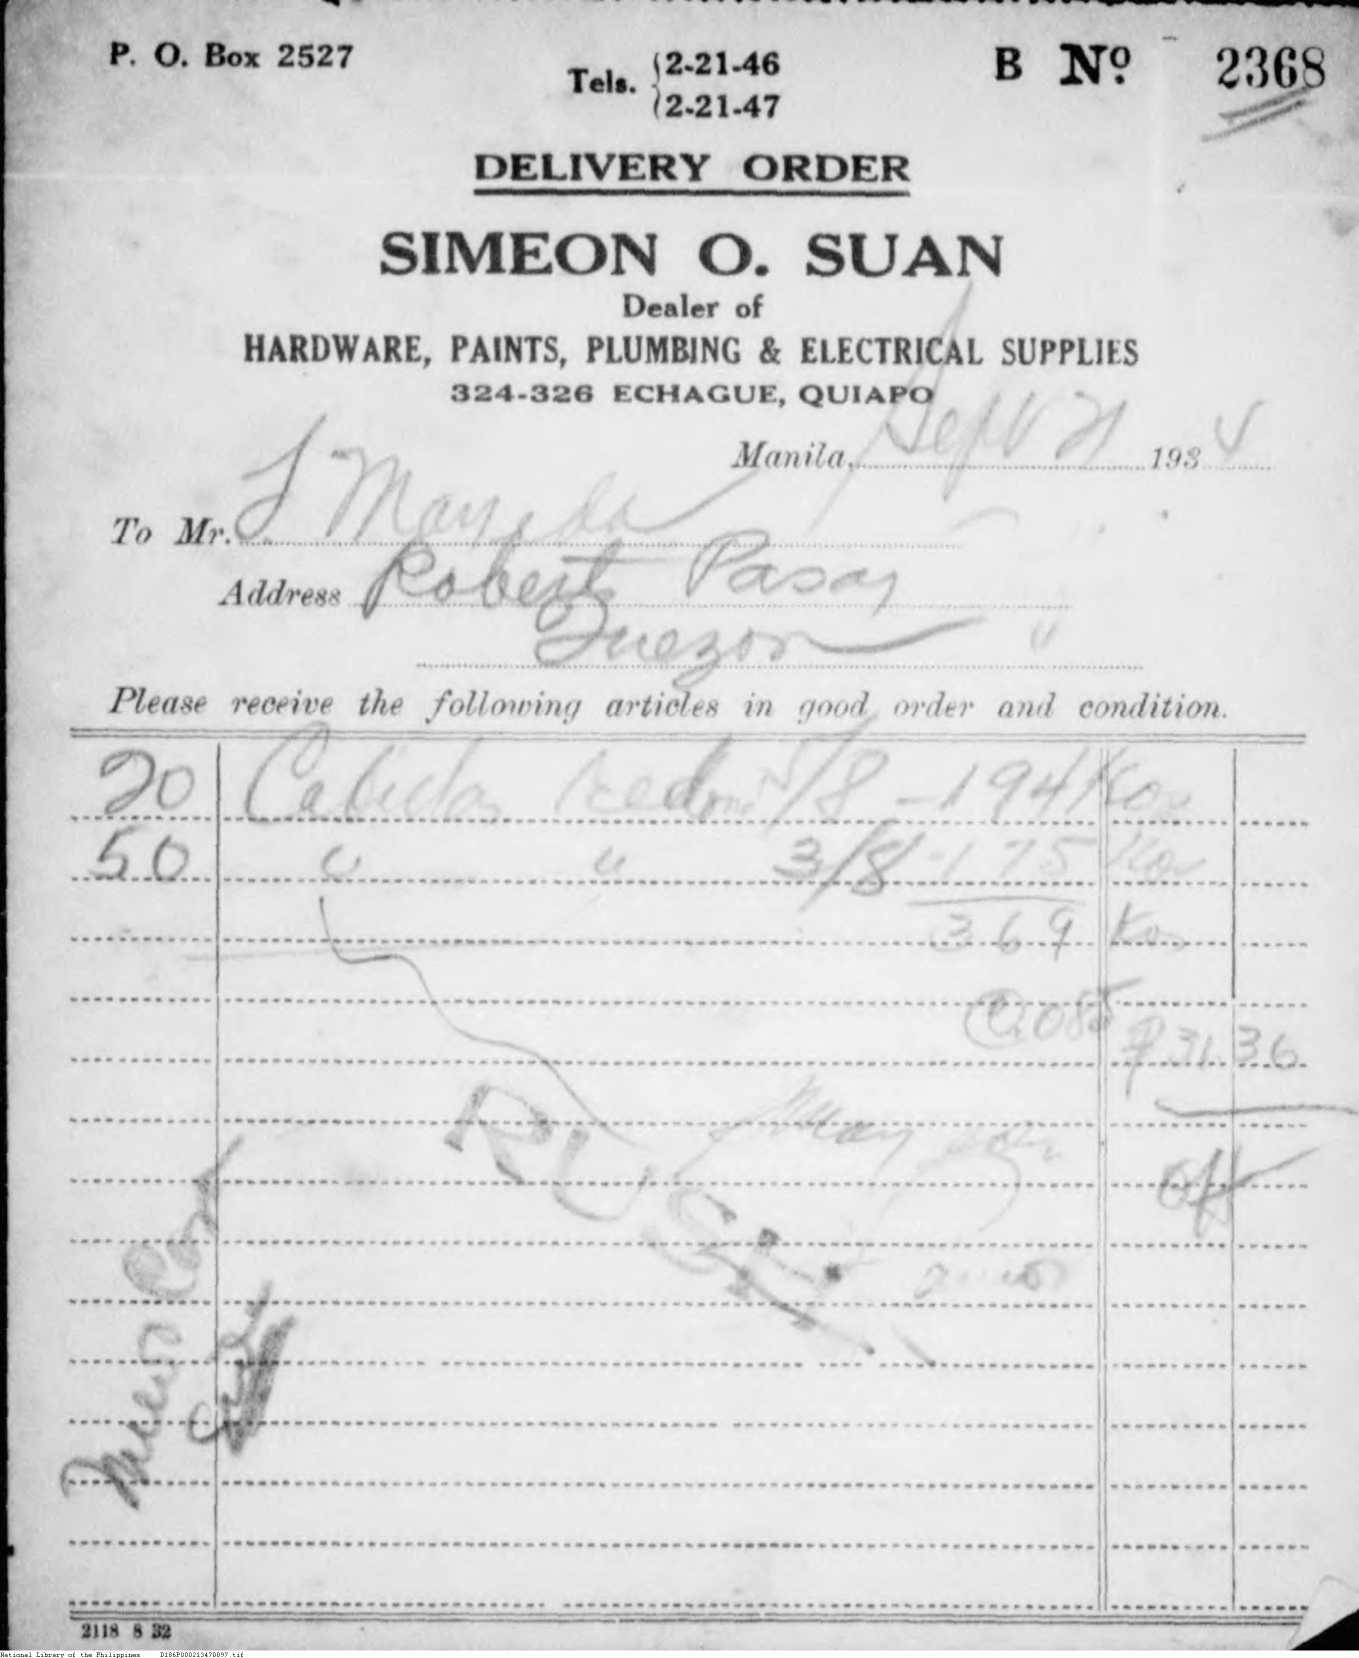 P. O. Box 2527
Tels. 2-21-46
2-21-47
B No. 2368
DELIVERY ORDER
SIMEON O. SUAN
Dealer of
HARDWARE, PAINTS, PLUMBING & ELECTRICAL SUPPLIES
324-326 ECHAGUE, QUIAPO
Manila, Sept 21 1934
To Mr.
Address Roberts Pasay
Quezon "
Please receive the following articles in good order and condition.
20 Cabillas 5/8 - 194 Kos
50 " " 3/8 - 175 Kos
369 Kos
@ .085
₱31.36
RUSH
2118 8 32
National Library of the Philippines D186P000213470897.tif